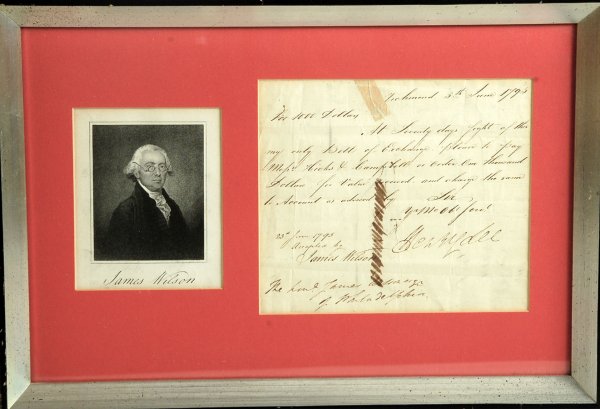 James Wilson
Richmond 5th June 1793
For 1000 Dollars
At Seventy days sight of this
my only Bill of Exchange please to pay
Messrs Hooks & Campbell or Order One thousand
Dollars for Value received and charge the same
to Account as advised by
Sir
Yr Mo Ob Servt
Henry Lee
23d June 1793
Accepted by
James Wilson
The Honl James Wilson esq
of Philadelphia